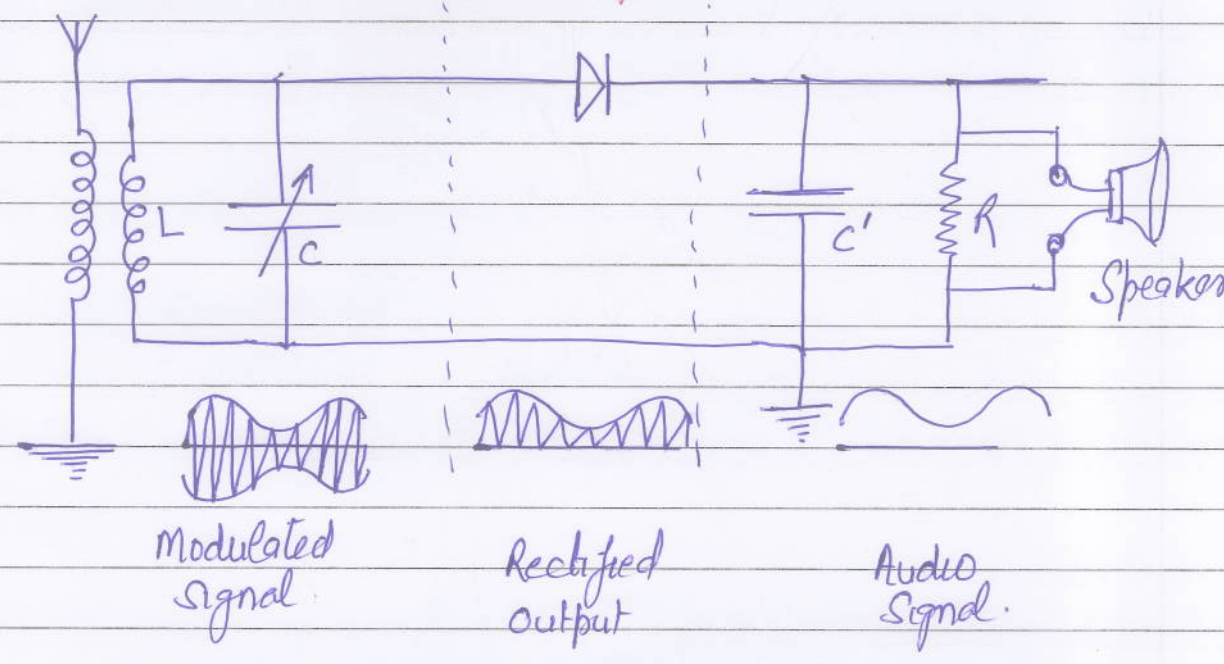 L
C
C'
R
Speaker
Modulated
Signal.
Rectified
Output
Audio
Signal.